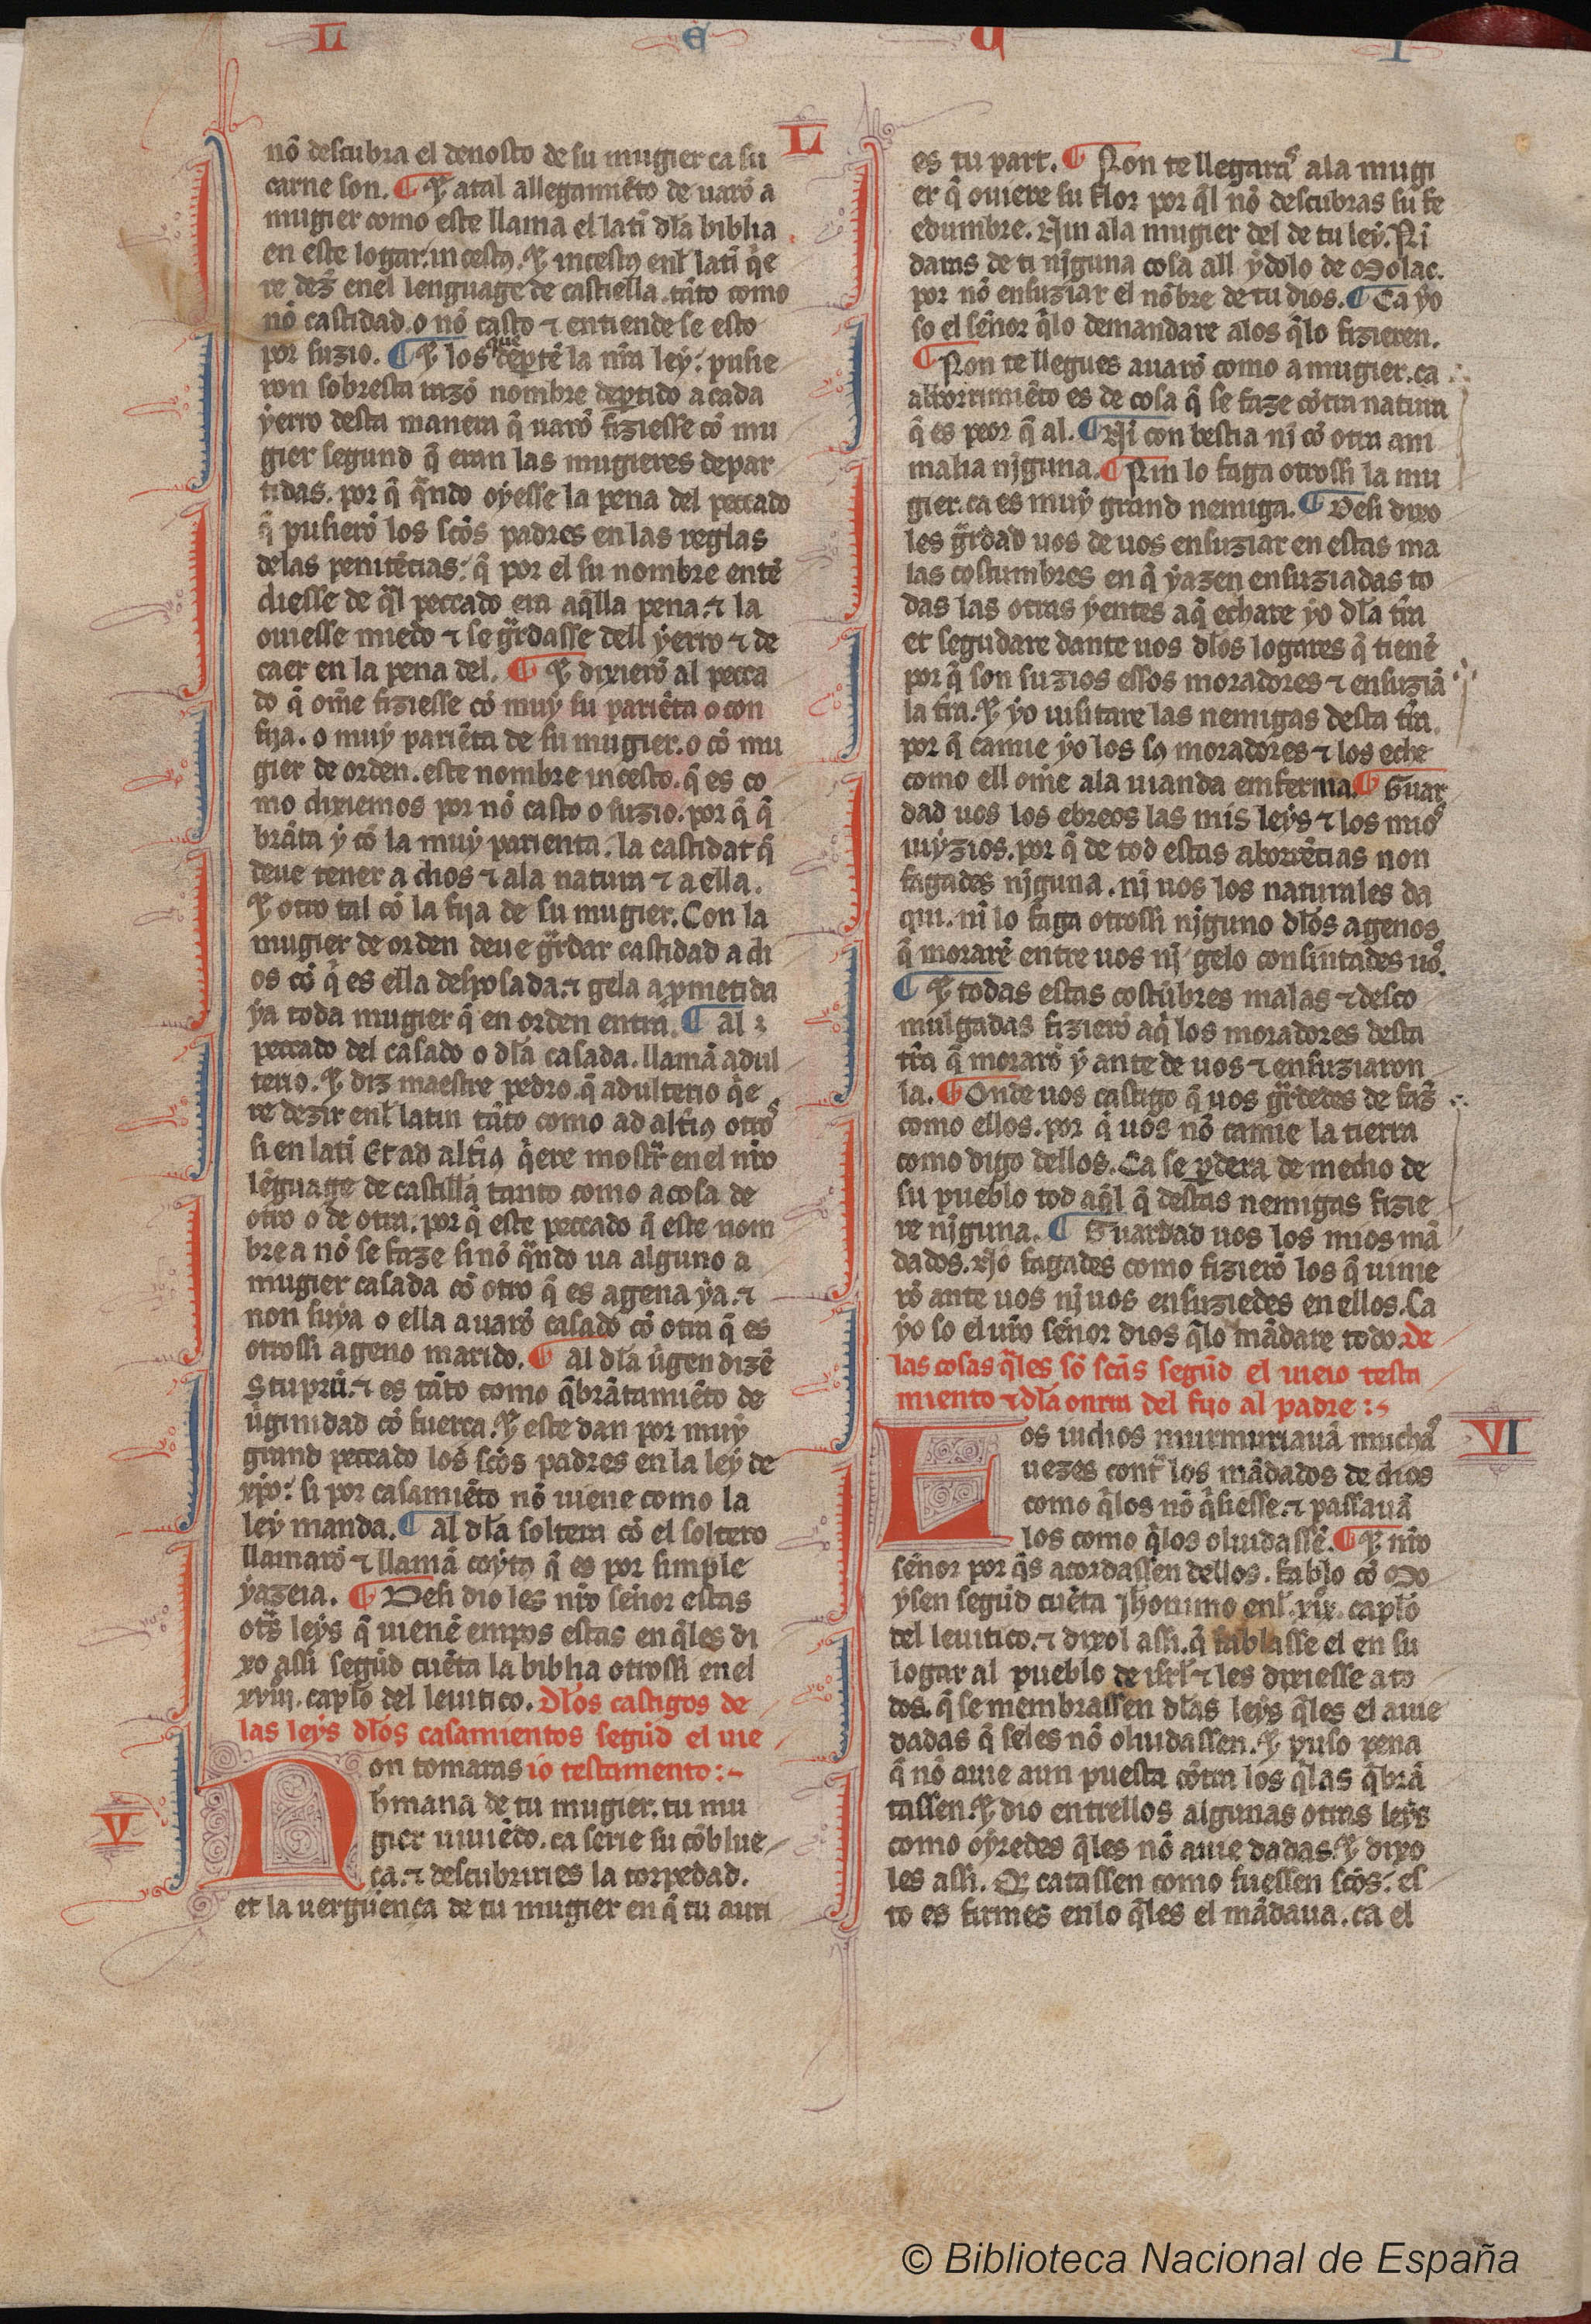 L E U I
nõ descubra el denosto de su mugier ca su
carne son. ¶ Et atal allegamiẽto de uarõ a
mugier como este llama el latĩ dla biblia
en este logar. incestꝰ. Et incestꝰ enl latĩ q̃e
re dez̃ enel lenguage de castiella. tãto como
nõ castidad. o nõ casto ⁊ entiende se esto
por suzio. ¶ Et los que depẽrtẽ la nr̃a ley: pusie
ron sobresta razõ nombre dep̱tido a cada
yerro desta manera q̃ uarõ fiziesse cõ mu
gier segund q̃ eran las mugieres depar
tidas. por q̃ q̃ndo oyesse la pena del peccado
q̃ pusierõ los sc̃os padres en las reglas
delas penitẽcias: q̃ por el su nombre entẽ
diesse de q̃l peccado era aq̃lla pena. ⁊ la
ouiesse miedo ⁊ se gr̃dasse dell yerro ⁊ de
caer en la pena del. ¶ Et dixierõ al pecca
do q̃ om̃e fiziesse cõ muy su pariẽta o con
fija. o muy pariẽta de su mugier. o cõ mu
gier de orden. este nombre incesto. q̃ es co
mo dixiemos por nõ casto o suzio. por q̃ q̃
brãta y cõ la muy parienta. la castidat q̃
deue tener a dios ⁊ ala natura ⁊ a ella.
Et otro tal cõ la fija de su mugier. Con la
mugier de orden deue gr̃dar castidad a di
os cõ q̃ es ella desposada. ⁊ gela a p̱metida
ya toda mugier q̃ en orden entra. ¶ al
peccado del casado o dla casada. llamã adul
terio. Et diz maestre pedro. q̃ adulterio q̃e
re dezir enl latin tãto como ad altĩꝰ otros
si en latĩ Et ad altĩꝰ q̃ere mostr̃ en el nr̃o
lẽguage de castilla tanto como a cosa de
otro o de otra. por q̃ este peccado q̃ este nom
bre a nõ se faze si nõ q̃ndo ua alguno a
mugier casada cõ otro q̃ es agena ya. ⁊
non suya o ella a uarõ casado cõ otra q̃ es
otrossi ageno marido. ¶ al dla ũgen dizẽ
Stuprũ. ⁊ es tãto como q̃brãtamiẽto de
ũginidad cõ fuerça. Et este dan por muy
grand peccado los sc̃os padres en la ley de
xp̃o: si por casamiẽto nõ uiene como la
ley manda. ¶ al dla soltera cõ el soltero
llamarõ ⁊ llamã coytꝰ q̃ es por simple
yazeia. ¶ Desi dio les nr̃o señor estas
otr̃s leys q̃ uienẽ empos estas en q̃les di
xo assi segũd cuẽta la biblia otrossi en el
xviij. cap̃lo del leuitico. Dlos castigos de
las leys dlos casamientos segũd el uie
io testamento:~
V
Non tomaras
h̃mana de tu mugier. tu mu
gier uiuiẽdo. ca serie su cõblue
ça. ⁊ descubriries la torpedad.
et la uergüença de tu mugier en q̃ tu auri
L
es tu part. ¶ Non te llegaras ala mugi
er q̃ ouiere su flor por q̃l nõ descubras su fe
edumbre. Nin ala mugier del de tu ley. Ni
daras de ti nĩguna cosa all ydolo de Moloc.
por nõ ensuziar el nõbre de tu dios. ¶ Ca yo
so el señor q̃lo demandare alos q̃lo fizieren.
¶ Non te llegues a uarõ como a mugier. ca
aborrimiẽto es de cosa q̃ se faze cõtra natura
q̃ es peor q̃ al. ¶ Ni con bestia nĩ cõ otra ani
malia nĩguna. ¶ Nin lo faga otrossi la mu
gier. ca es muy grand nemiga. ¶ Desi dixo
les gr̃dad uos de uos ensuziar en estas ma
las costumbres en q̃ yazen ensuziadas to
das las otras yentes aq̃ echare yo dla tr̃ra
et segudare dante uos dlos logares q̃ tienẽ
por q̃ son suzios essos moradores ⁊ ensuziã
la tr̃ra. Et yo uisitare las nemigas desta tr̃ra.
por q̃ camie yo los sꝰ moradores ⁊ los eche
como ell om̃e ala uianda emferma. ¶ Guar
dad uos los ebreos las mis leys ⁊ los mios
iuyzios. por q̃ de tod estas aborrẽcias non
fagades nĩguna. nĩ uos los naturales da
qui. nĩ lo faga otrossi nĩguno dlos agenos
q̃ morarẽ entre uos nĩ gelo consintades uos.
¶ Et todas estas costũbres malas ⁊ desco
mulgadas fizierõ aq̃ los moradores desta
tr̃ra q̃ morarõ y ante de uos ⁊ ensuziaron
la. ¶ Onde uos castigo q̃ uos gr̃dedes de faz̃
como ellos. por q̃ uos nõ camie la tierra
como digo dellos. Ca se p̱dera de medio de
su pueblo tod aq̃l q̃ destas nemigas fizie
re nĩguna. ¶ Guardad uos los mios mã
dados. Nõ fagades como fizierõ los q̃ uinie
rõ ante uos nĩ uos ensuziedes en ellos. Ca
yo so el ur̃o señor dios q̃lo mãdare todo. De
las cosas q̃les sõ sc̃as segũd el uieio testa
miento ⁊ dla onrra del fijo al padre:~
VI
Los iudios murmuriauã muchas
uezes contr̃ los mãdados de dios
como q̃los nõ q̃siesse. ⁊ passauã
los como q̃los oluidassẽ. ¶ Et nr̃o
señor por q̃s acordassen dellos. fablo cõ Mo
ysen segũd cuẽta jheronimo enl. xix. cap̃lo
del leuitico. ⁊ dixol assi. q̃ fablasse el en su
logar al pueblo de isrl ⁊ les dixiesse a to
dos. q̃ se membrassen dlas leys q̃les el auie
dadas q̃ seles nõ oluidassen. Et puso pena
q̃ nõ auie aun puesta cõtra los q̃las q̃brã
tassen. Et dio entrellos algunas otras leys
como oyredes q̃les nõ auie dadas. Et dixo
les assi. Q̃ catassen como fuessen sc̃os: es
to es firmes enlo q̃les el mãdaua. ca el
© Biblioteca Nacional de España